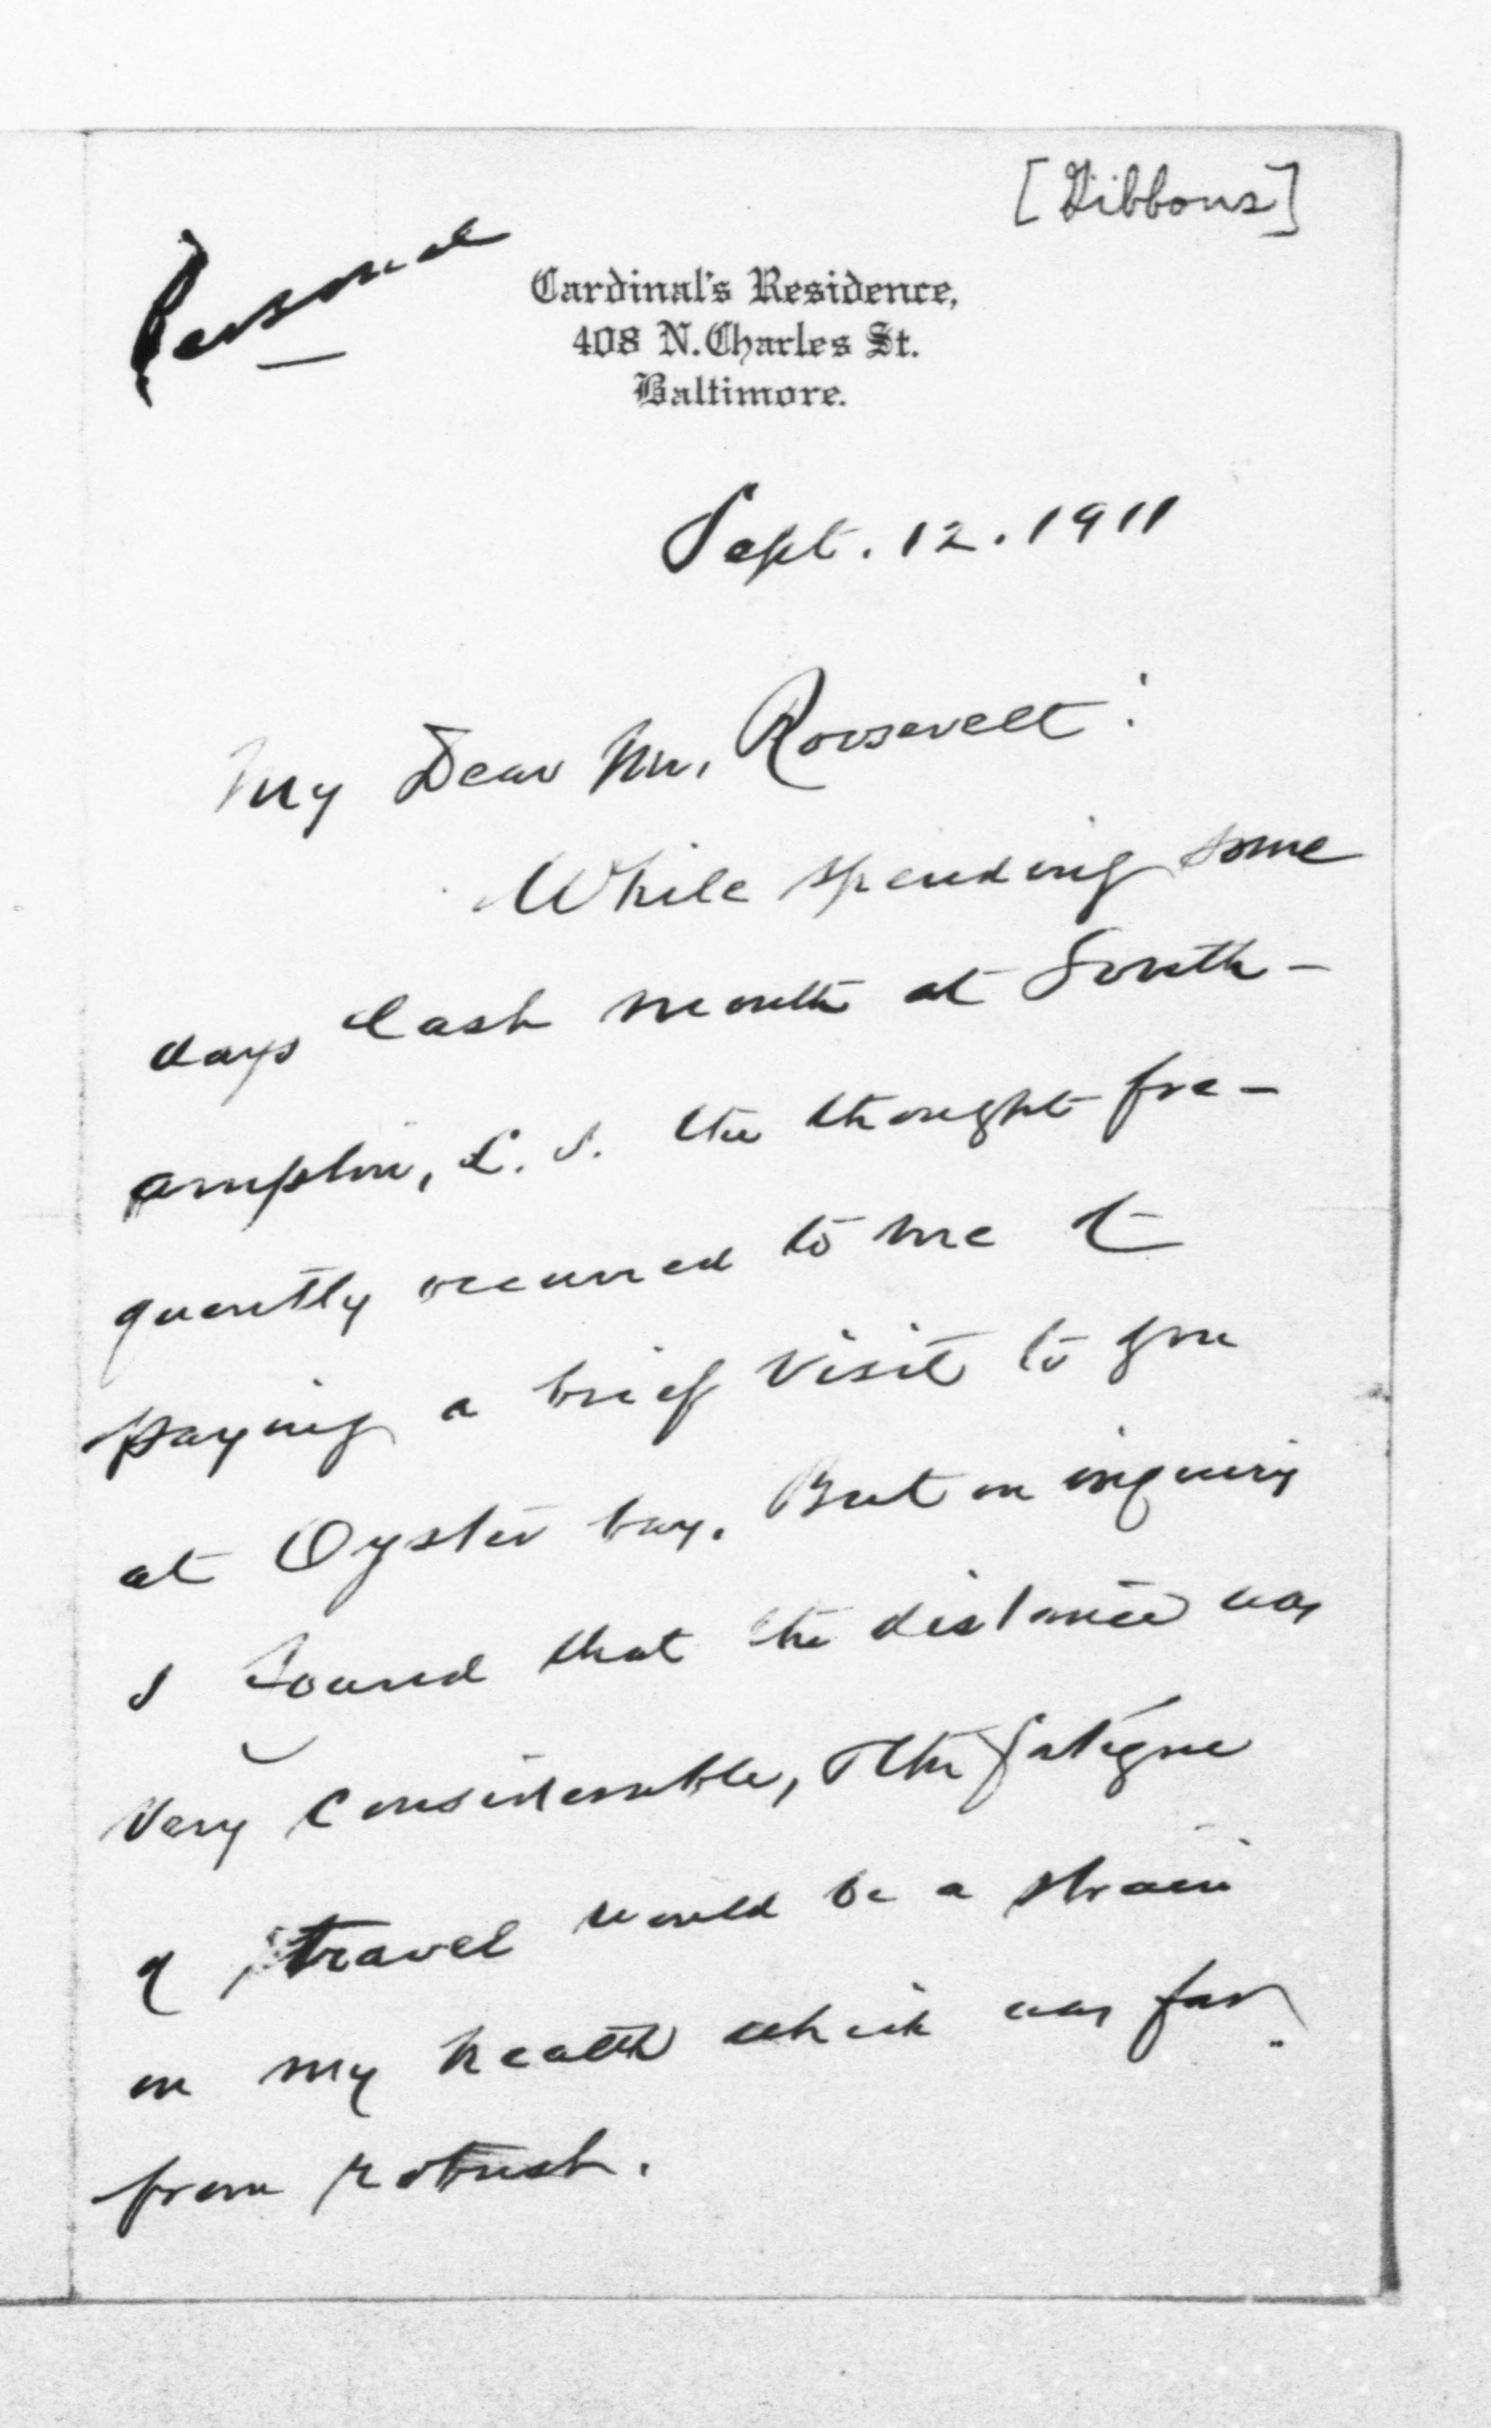 [Gibbons]
Personal
Cardinal's Residence,
408 N. Charles St.
Baltimore.
Sept. 12. 1911
My Dear Mr. Roosevelt:
While spending some
days last month at South-
ampton, L. I. the thought fre-
quently occurred to me of
paying a brief visit to you
at Oyster bay. But on inquiry
I found that the distance was
very considerable, & the fatigue
of travel would be a strain
on my health which was far
from robust.